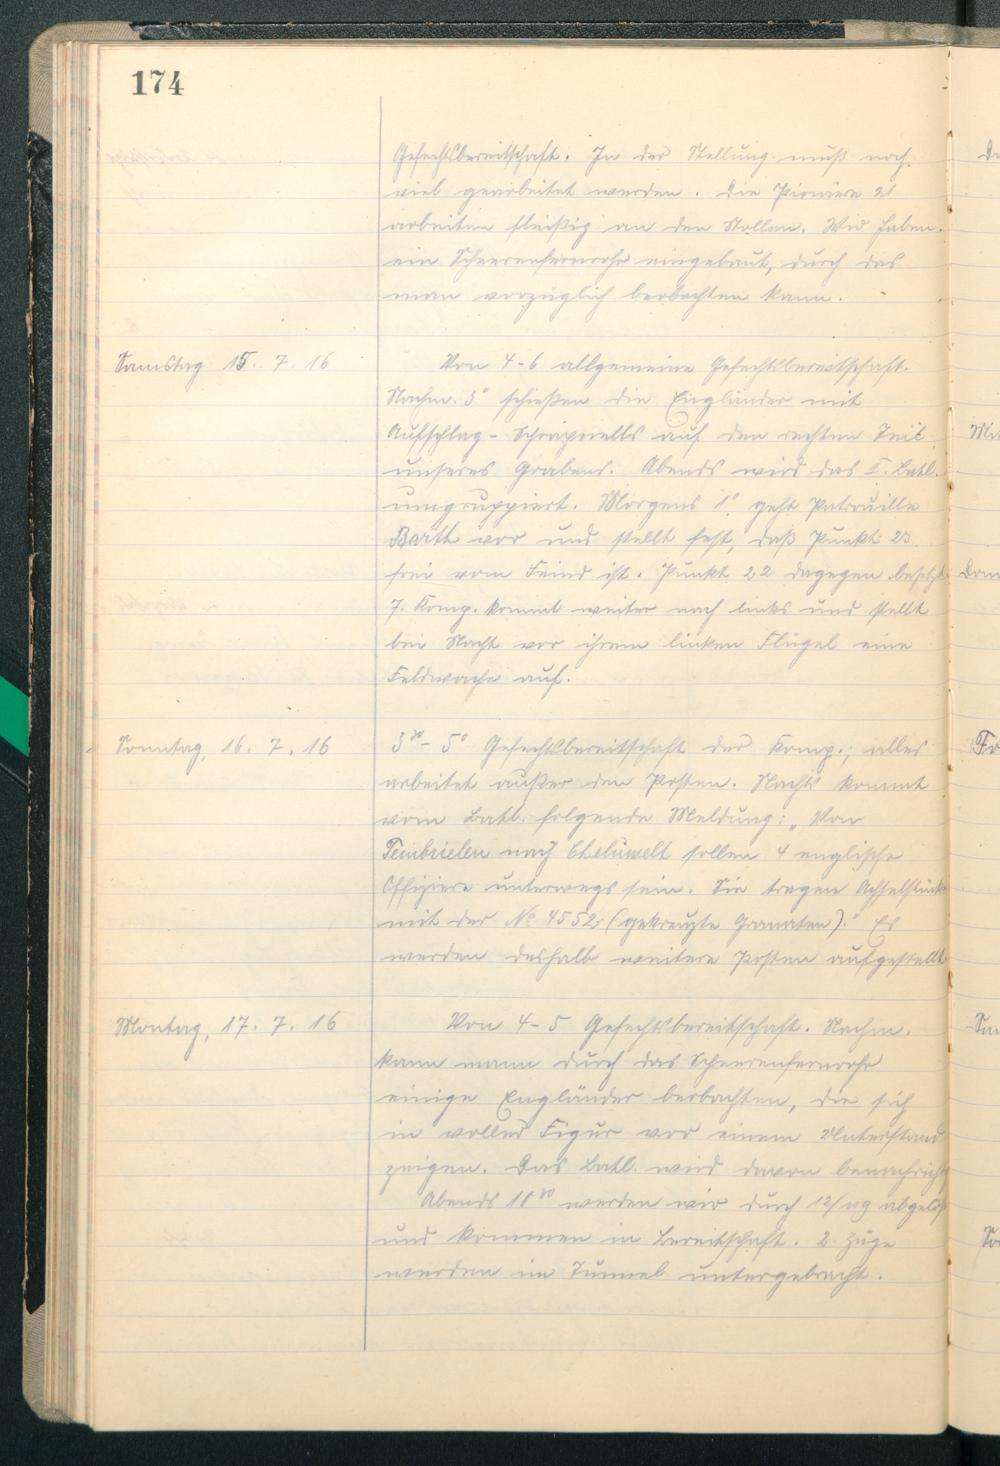 174
Gefechtsbereitschaft. In der Stellung muß noch
viel gearbeitet werden. Die Pioniere
arbeiten fleißig an den Stollen. Wir haben
ein Scherenfernrohr eingebaut, durch das
man vorzüglich beobachten kann.
Samstag 15. 7. 16 Von 4-6 allgemeine Gefechtsbereitschaft.
Nachm. 3° schießen die Engländer mit
Aufschlag-Schrapnells auf den rechten Teil
unseres Grabens. Abends wird das Batl.
umgruppiert. Morgens 1° geht Patrouille
Barth vor und stellt fest, daß Punkt 23
frei vom Feind ist. Punkt 22 dagegen besetzt.
7. Komp. kommt weiter nach links und stellt
bei Nacht vor ihrem linken Flügel eine
Feldwache auf.
Sonntag, 16. 7. 16 3³⁰- 5° Gefechtsbereitschaft der Komp.; alles
arbeitet außer den Posten. Nachts kommt
vom Batl. folgende Meldung: „Von
Tenbrielen nach sollen 4 englische
Offiziere unterwegs sein. Sie tragen Achselstücke
mit der № 4552 (gekreuzte Granaten)." Es
werden deshalb weitere Posten aufgestellt
Montag, 17. 7. 16 Von 4-5 Gefechtsbereitschaft. Nachm.
kann mann durch das Scheerenfernrohr
einige Engländer beobachten, die sich
in voller Figur vor einem Unterstand
zeigen. Das Batl. wird davon benachrichtigt
Abends 10³⁰ werden wir durch abgelöst
und kommen in Bereitschaft. 2 Züge
werden im Tunnel untergebracht.